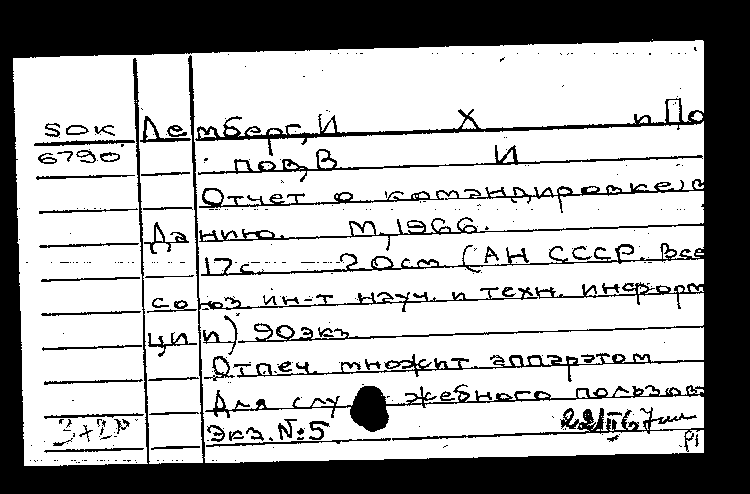 SOK Лемберг, И Х и По
6790 под, В И
Отчет о командировке в
Данию. М, 1966.
17с. 20см (АН СССР. Все
союз ин-т науч. и техн. информ
ции) 90экз
Отпеч. множит. аппаратом
Для служебного пользов
3+2
Экз. №5